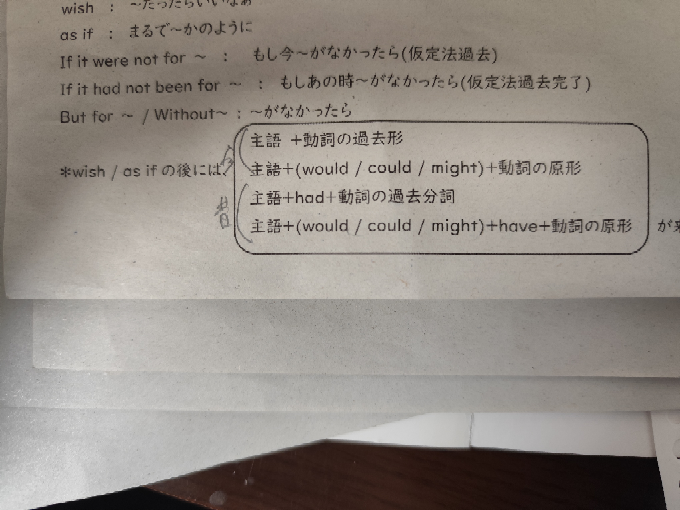 wish : ～だったらいいなあ
as if : まるで～かのように
If it were not for ～ : もし今～がなかったら(仮定法過去)
If it had not been for ～ : もしあの時～がなかったら(仮定法過去完了)
But for ～ / Without～ : ～がなかったら
主語 +動詞の過去形
*wish / as if の後には、 主語+(would / could / might)+動詞の原形
昔 主語+had+動詞の過去分詞
主語+(would / could / might)+have+動詞の原形 が